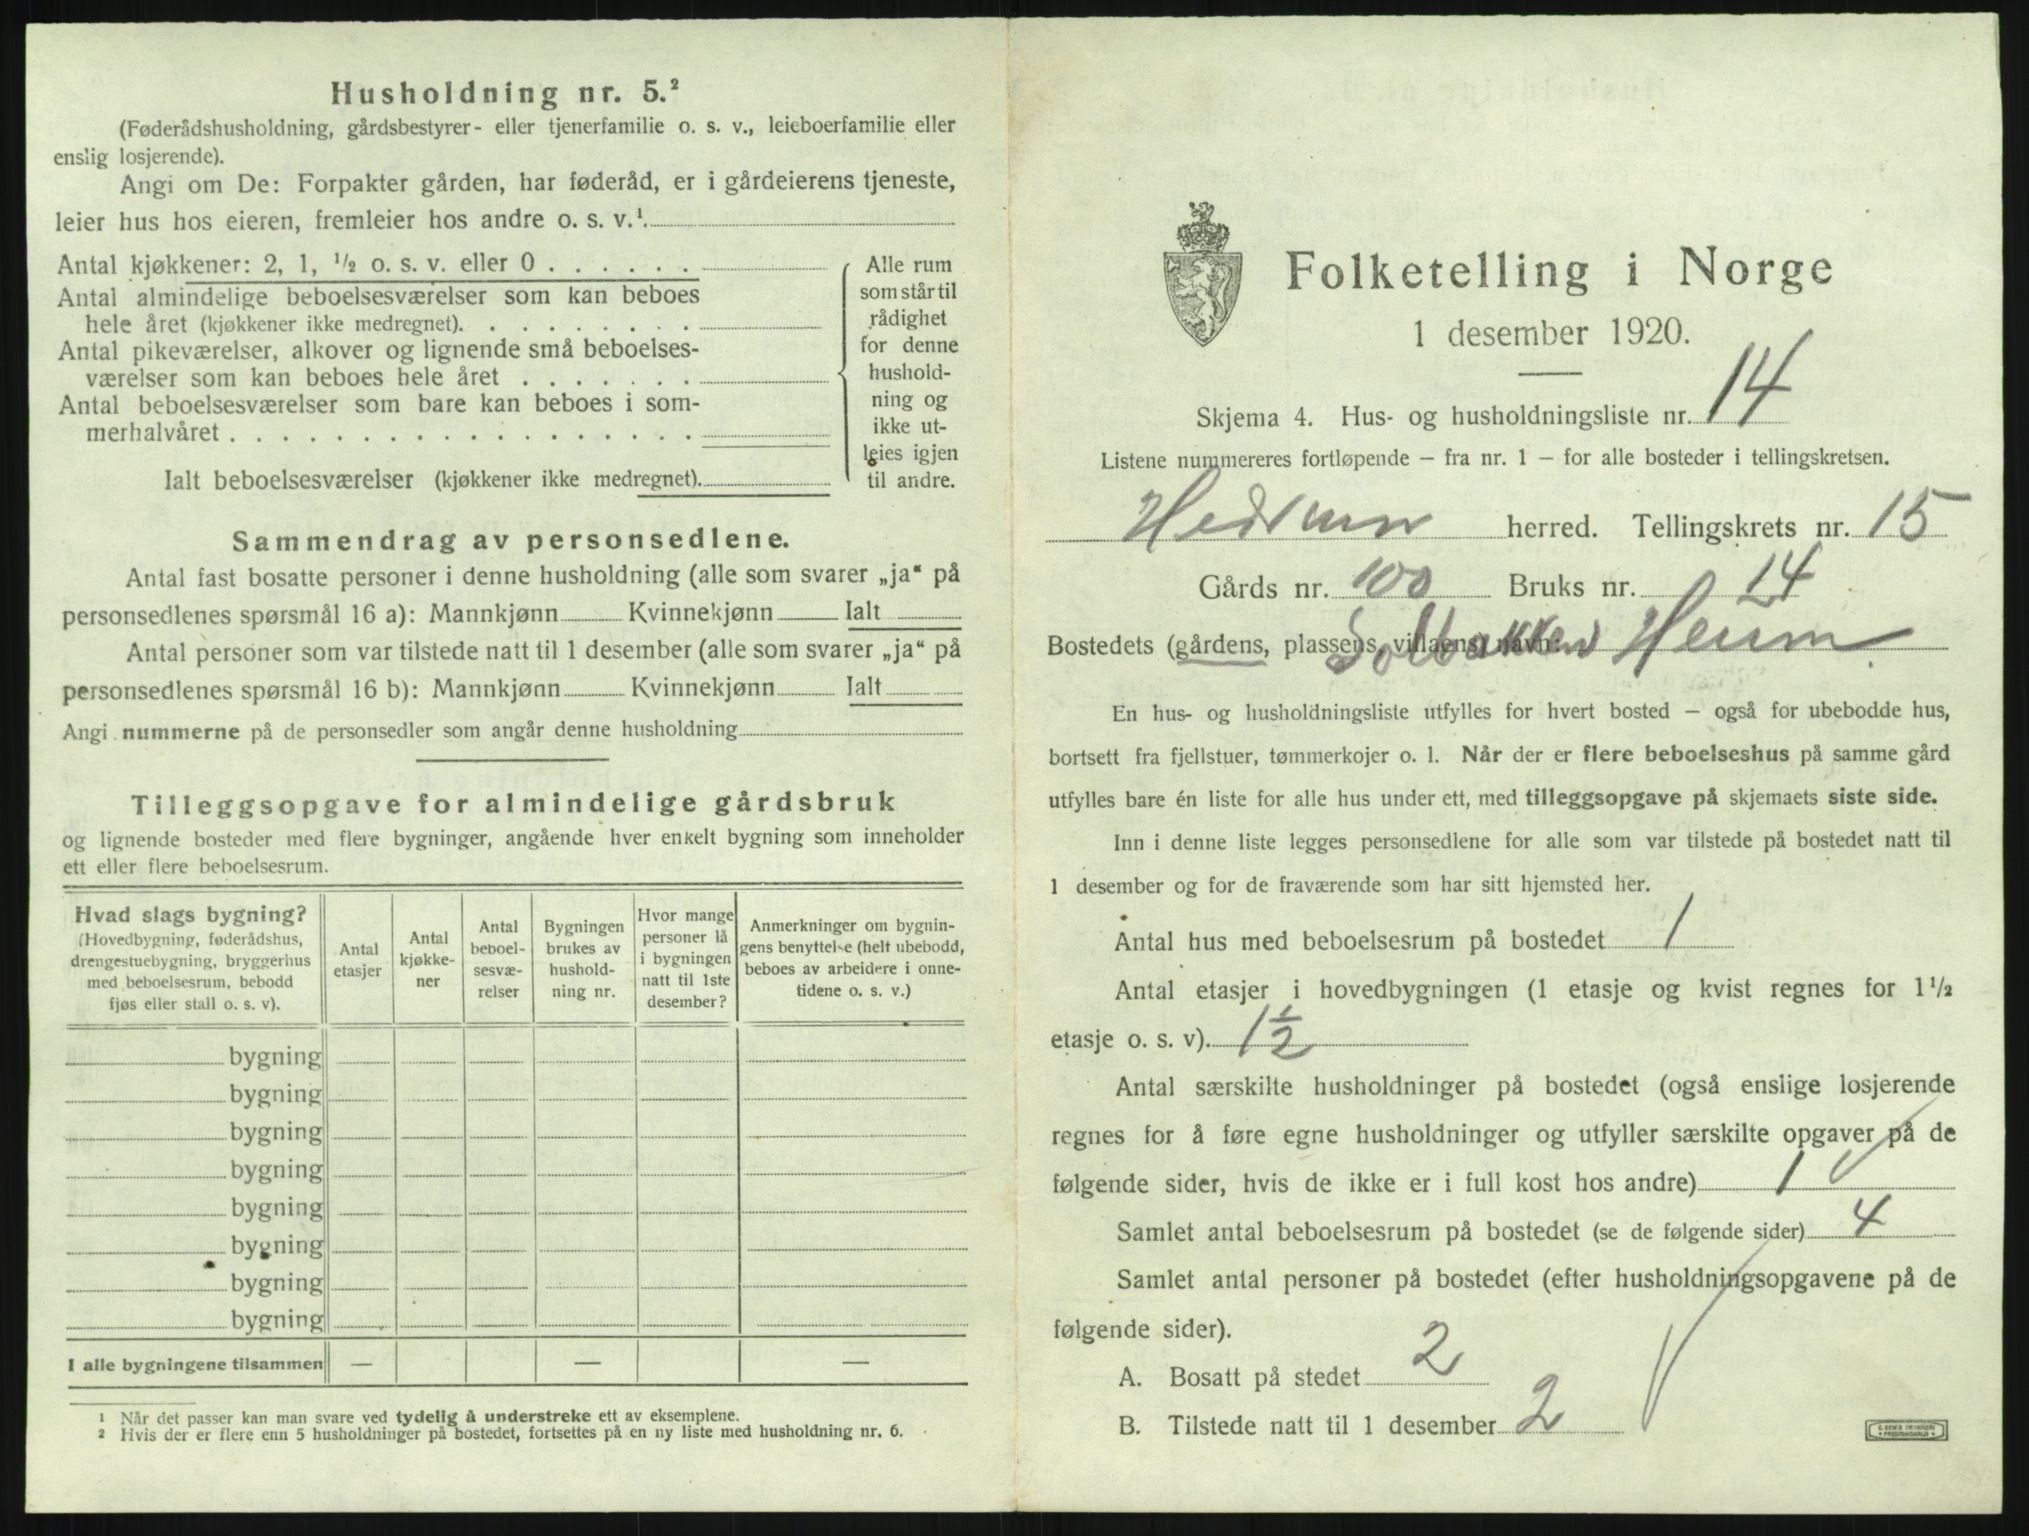 Husholdning nr. 5.²
(Føderådshusholdning, gårdsbestyrer- eller tjenerfamilie o. s. v., leieboerfamilie eller
enslig losjerende).
Angi om De: Forpakter gården, har føderåd, er i gårdeierens tjeneste,
leier hus hos eieren, fremleier hos andre o. s. v.¹.
Antal kjøkkener: 2, 1, ½ o. s. v. eller 0 . . . . . .
Antal almindelige beboelsesværelser som kan beboes
hele året (kjøkkener ikke medregnet). . . . . . . . .
Antal pikeværelser, alkover og lignende små beboelses-
værelser som kan beboes hele året . . . . . . .
Antal beboelsesværelser som bare kan beboes i som-
merhalvåret . . . . . . . . . . . . . . . . . .
Ialt beboelsesværelser (kjøkkener ikke medregnet).
Alle rum
som står til
rådighet
for denne
hushold-
ning og
ikke ut-
leies igjen
til andre.
Sammendrag av personsedlene.
Antal fast bosatte personer i denne husholdning (alle som svarer „ja“ på
personsedlenes spørsmål 16 a): Mannkjønn Kvinnekjønn Ialt
Antal personer som var tilstede natt til 1 desember (alle som svarer „ja“ på
personsedlenes spørsmål 16 b): Mannkjønn Kvinnekjønn Ialt
Angi nummerne på de personsedler som angår denne husholdning
Tilleggsopgave for almindelige gårdsbruk
og lignende bosteder med flere bygninger, angående hver enkelt bygning som inneholder
ett eller flere beboelsesrum.
Hvad slags bygning?
(Hovedbygning, føderådshus,
drengestuebygning, bryggerhus
med beboelsesrum, bebodd
fjøs eller stall o. s. v).
Antal
etasjer
Antal
kjøkke-
ner
Antal
beboel-
sesvæ-
relser
Bygningen
brukes av
hushold-
ning nr.
Hvor mange
personer lå
i bygningen
natt til 1ste
desember?
Anmerkninger om bygnin-
gens benyttelse (helt ubebodd,
beboes av arbeidere i onne-
tidene o. s. v.)
bygning
bygning
bygning
bygning
bygning
bygning
bygning
bygning
I alle bygningene tilsammen — — —
¹ Når det passer kan man svare ved tydelig å understreke ett av eksemplene.
² Hvis der er flere enn 5 husholdninger på bostedet, fortsettes på en ny liste med husholdning nr. 6.
Folketelling i Norge
1 desember 1920.
Skjema 4. Hus- og husholdningsliste nr. 14
Listene nummereres fortløpende – fra nr. 1 – for alle bosteder i tellingskretsen.
Hedrum herred. Tellingskrets nr. 15
Gårds nr. 100 Bruks nr. 14
Bostedets (gårdens, plassens, villaens) navn: Solbakken Heum
En hus- og husholdningsliste utfylles for hvert bosted – også for ubebodde hus,
bortsett fra fjellstuer, tømmerkojer o. l. Når der er flere beboelseshus på samme gård
utfylles bare én liste for alle hus under ett, med tilleggsopgave på skjemaets siste side.
Inn i denne liste legges personsedlene for alle som var tilstede på bostedet natt til
1 desember og for de fraværende som har sitt hjemsted her.
Antal hus med beboelsesrum på bostedet 1
Antal etasjer i hovedbygningen (1 etasje og kvist regnes for 1½
etasje o. s. v). 1½
Antal særskilte husholdninger på bostedet (også enslige losjerende
regnes for å føre egne husholdninger og utfyller særskilte opgaver på de
følgende sider, hvis de ikke er i full kost hos andre) 1
Samlet antal beboelsesrum på bostedet (se de følgende sider) 4
Samlet antal personer på bostedet (efter husholdningsopgavene på de
følgende sider).
A. Bosatt på stedet 2
B. Tilstede natt til 1 desember 2